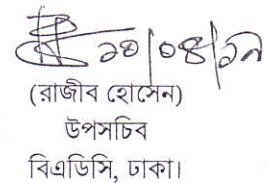 ২৩/০৪/১৯
(রাজীব হোসেন)
উপসচিব
বিএডিসি, ঢাকা।